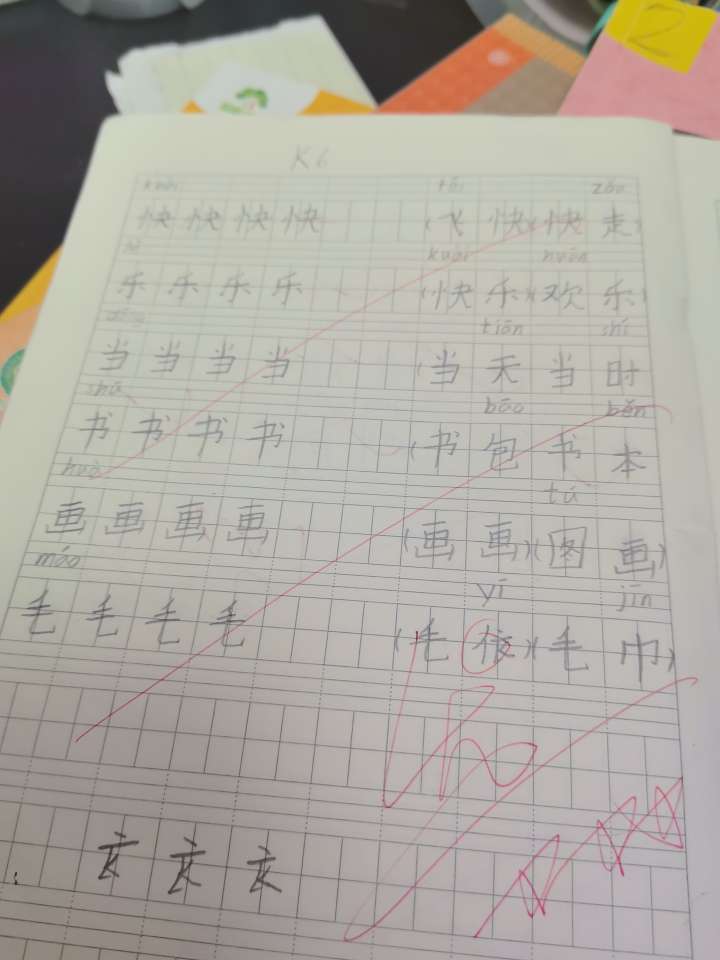 2
K6
kuài fēi zǒu
快 快 快 快 (飞 快)(快 走)
lè kuài huān
乐 乐 乐 乐 (快 乐)(欢 乐)
dāng tiān shí
当 当 当 当 (当 天 当 时
shū bāo běn
书 书 书 书 (书 包 书 本
huà tú
画 画 画 画 (画 画)(图 画)
máo yī jīn
毛 毛 毛 毛 (毛 依)(毛 巾)